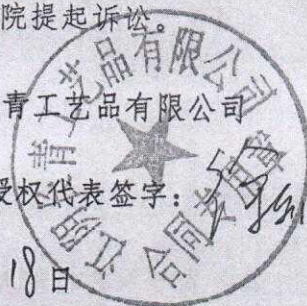 院提起诉讼。
青工艺品有限公司
授权代表签字：
18日
江阴 青工艺品有限公司
合同专用章